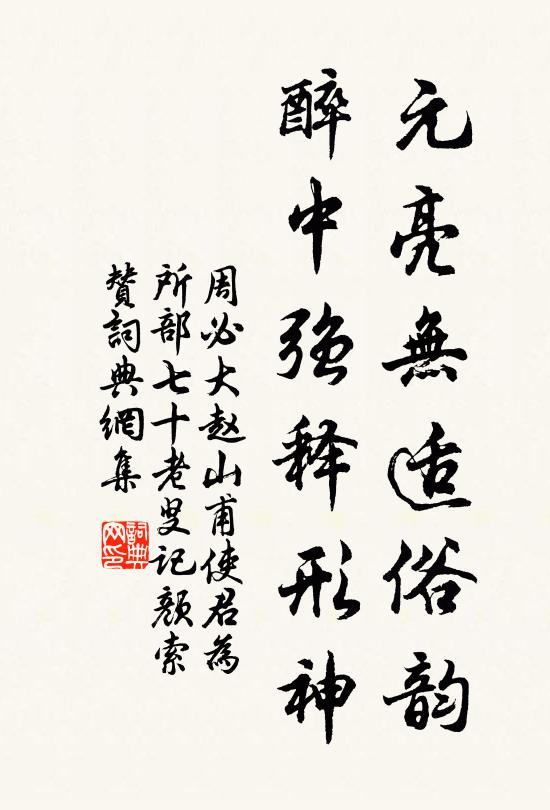 元亮無适俗韵
醉中強释形神
周必大赵山甫使君為
所部七十老叟记顔索
贊詞典網集
詞典网印